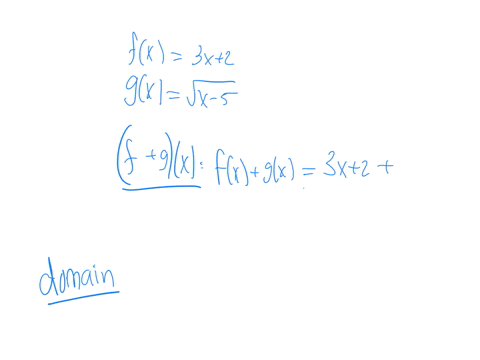 f(x) = 3x+2
g(x) = √x-5
(f+g)(x): f(x)+g(x) = 3x+2 +
domain